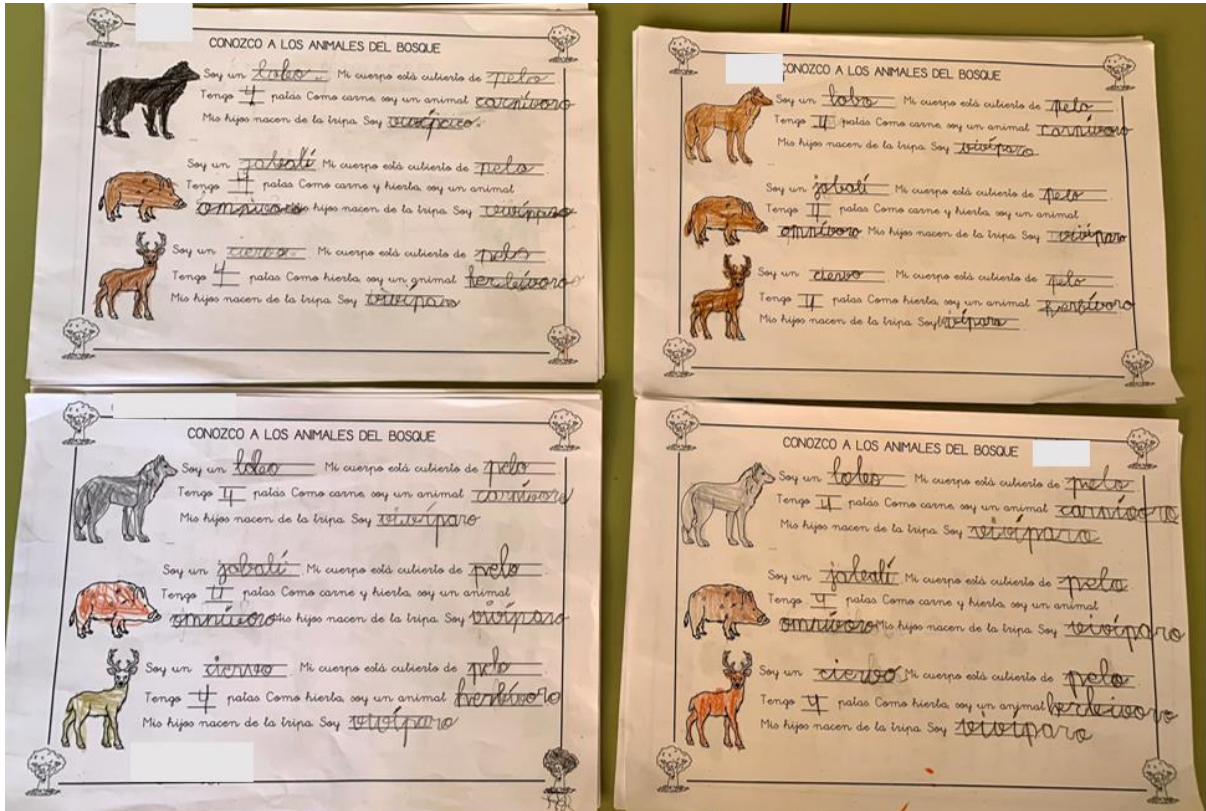 CONOZCO A LOS ANIMALES DEL BOSQUE
Soy un lobo. Mi cuerpo está cubierto de pelo
Tengo 4 patas Como carne, soy un animal carnívoro
Mis hijos nacen de la tripa. Soy vivíparo.
Soy un jabalí Mi cuerpo está cubierto de pelo
Tengo 4 patas Como carne y hierba, soy un animal
omnivoro Mis hijos nacen de la tripa. Soy vivíparo
Soy un ciervo. Mi cuerpo está cubierto de pelo
Tengo 4 patas Como hierba, soy un animal herbívoro
Mis hijos nacen de la tripa. Soy vivíparo
CONOZCO A LOS ANIMALES DEL BOSQUE
Soy un lobo Mi cuerpo está cubierto de pelo
Tengo 4 patas Como carne, soy un animal carnívoro
Mis hijos nacen de la tripa. Soy vivíparo
Soy un jabalí Mi cuerpo está cubierto de pelo
Tengo 4 patas Como carne y hierba, soy un animal
omnívoro Mis hijos nacen de la tripa. Soy vivíparo
Soy un ciervo Mi cuerpo está cubierto de pelo
Tengo 4 patas Como hierba, soy un animal herbívoro
Mis hijos nacen de la tripa. Soy vivíparo
CONOZCO A LOS ANIMALES DEL BOSQUE
Soy un lobo Mi cuerpo está cubierto de pelo
Tengo 4 patas Como carne, soy un animal carnívoro
Mis hijos nacen de la tripa. Soy vivíparo
Soy un jabalí Mi cuerpo está cubierto de pelo
Tengo 4 patas Como carne y hierba, soy un animal
omnívoro Mis hijos nacen de la tripa. Soy vivíparo
Soy un ciervo Mi cuerpo está cubierto de pelo
Tengo 4 patas Como hierba, soy un animal herbívoro
Mis hijos nacen de la tripa. Soy vivíparo
CONOZCO A LOS ANIMALES DEL BOSQUE
Soy un lobo Mi cuerpo está cubierto de pelo
Tengo 4 patas Como carne, soy un animal
Mis hijos nacen de la tripa. Soy vivíparo
Soy un jabalí Mi cuerpo está cubierto de pelo
Tengo 4 patas Como carne y hierba, soy un animal
omnívoro Mis hijos nacen de la tripa. Soy vivíparo
Soy un Mi cuerpo está cubierto de pelo
Tengo 4 patas Como hierba, soy un animal herbivoro
Mis hijos nacen de la tripa. Soy vivíparo